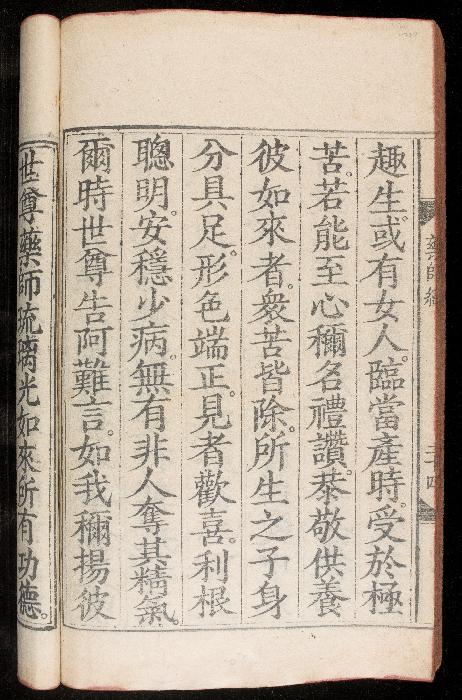 藥師經
三十四
趣生。或有女人。臨當產時。受於極
苦。若能至心稱名禮讚。恭敬供養
彼如來者。衆苦皆除。所生之子身
分具足。形色端正。見者歡喜。利根
聰明。安穩少病。無有非人奪其精氣。
爾時世尊告阿難言。如我稱揚彼
世尊藥師琉璃光如來所有功德。